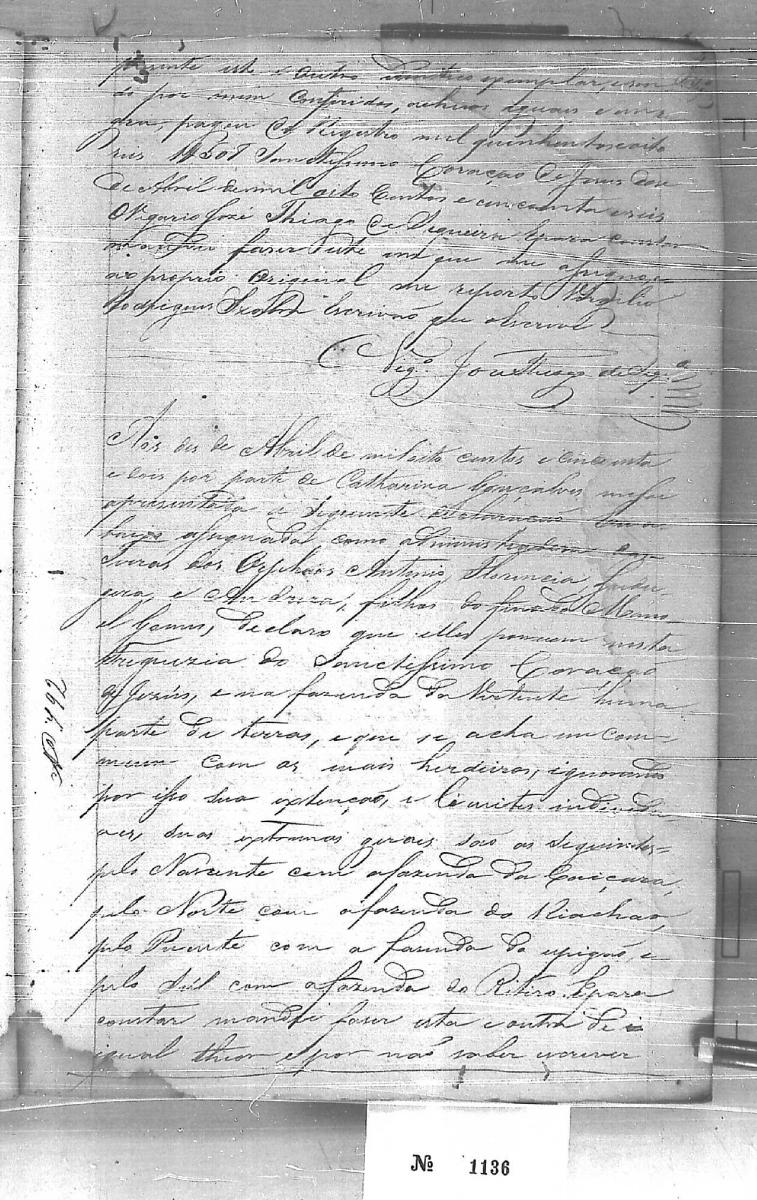 presente este e outro exemplar, e sen
do por mim conferidos, achei os iguais e
pagou de Registro mil quinhentos oito
reis 1$508 Sanctissimo Coração de Jesus
de Abril de mil oito centos e cincoenta e seis
O Vigario José Thiago de Siqueira Epara constar
mandei faser este em que me assigno, e
ao proprio original me reporto
Rodrigues Escrivão que o escrevi
Vigº José Thiago de Siqª
Aos dez de Abril de mil oito centos e cincoenta
e dois por parte de Catharina Gonçalves me foi
apresentada a seguinte declaração Eu a
baixo assignada como administradora das
terras dos Orphãos Antonio, Florencia,
e filhos do finado Mano
el Gomes, declaro que elles possuem nesta
Freguezia do Sanctissimo Coração
de Jesús, e na fazenda da Vertente huma
parte de terras, e que se acha em com
mum com os mais herdeiros, ignorando
por isso sua extenção, e limites individu
aes, suas extremas gerais são as seguintes=
pelo Nascente com a fazenda da Caiçara,
pelo Norte com a fazenda do Riachão,
pelo Puente com a fazenda do e
pelo Súl com a fazenda do Ritiro. Epara
constar mandei faser esta e outra de
igual theor e por não saber escrever
Nº 1136